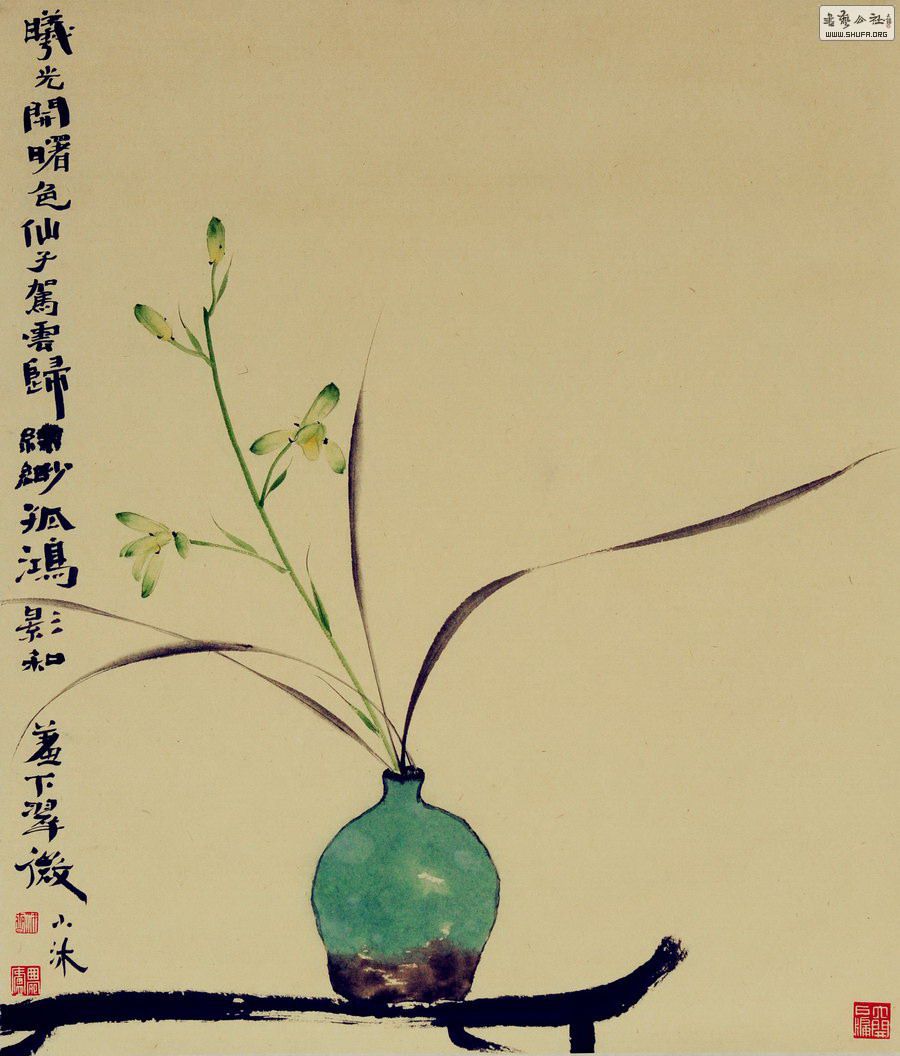 曦光開曙色仙子駕雲歸縹緲孤鴻影和羞下翠微
小沐
WWW.SHUFA.ORG